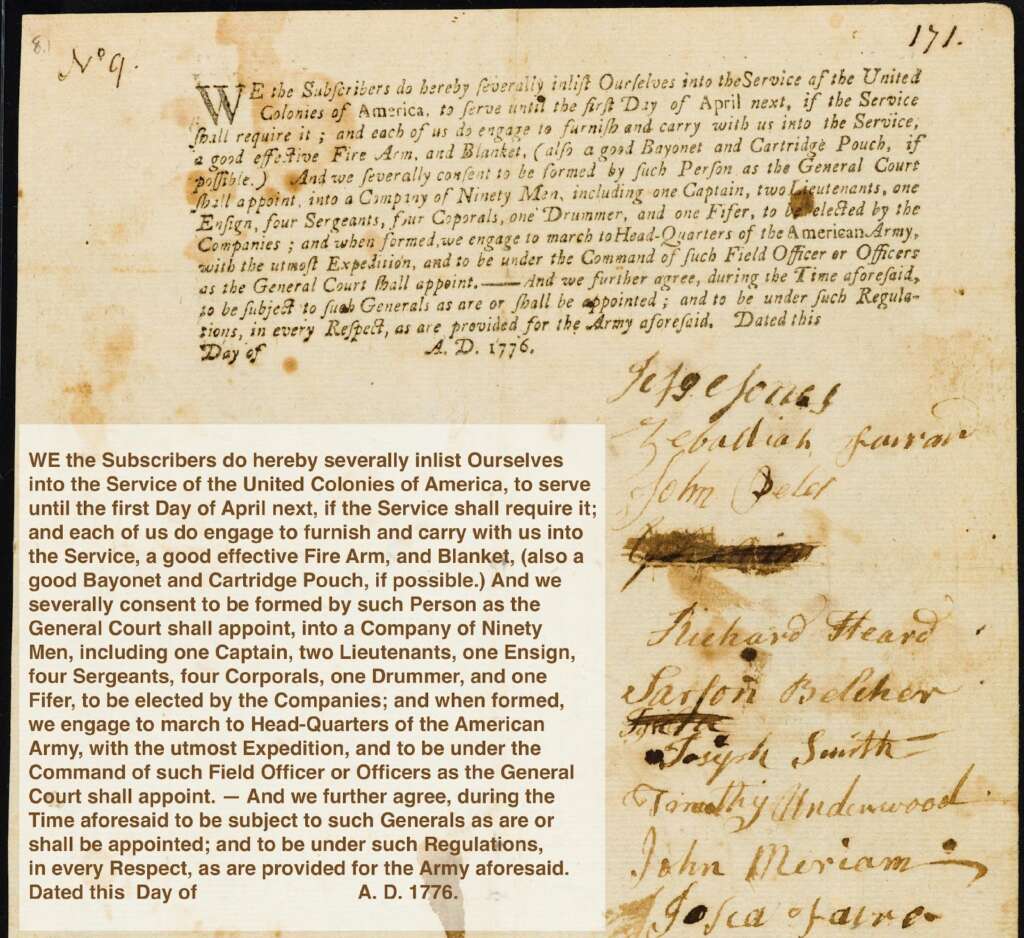 8.
Nº 9.
171.
WE the Subſcribers do hereby ſeverally inliſt Ourſelves into the Service af the United
Colonies of America, to ſerve until the firſt Day of April next, if the Service
ſhall require it ; and each of us do engage to furniſh and carry with us into the Service,
a good effective Fire Arm, and Blanket, (alſo a good Bayonet and Cartridge Pouch, if
poſſible.) And we ſeverally conſent to be formed by ſuch Perſon as the General Court
ſhall appoint, into a Company of Ninety Men, including one Captain, two Lieutenants, one
Enſign, four Sergeants, four Coporals, one Drummer, and one Fifer, to be elected by the
Companies ; and when formed, we engage to march to Head-Quarters of the American Army,
with the utmoſt Expedition, and to be under the Command of ſuch Field Officer or Officers
as the General Court ſhall appoint. —— And we further agree, during the Time aforeſaid,
to be ſubject to ſuch Generals as are or ſhall be appointed ; and to be under ſuch Regula-
tions, in every Reſpect, as are provided for the Army aforeſaid. Dated this
Day of A. D. 1776.
Jeſse Jones
Zebadiah
John
Richard Heard
Sarſon Belcher
Joseph Smith
Timothy Underwood
John Meriam
WE the Subscribers do hereby severally inlist Ourselves
into the Service of the United Colonies of America, to serve
until the first Day of April next, if the Service shall require it;
and each of us do engage to furnish and carry with us into
the Service, a good effective Fire Arm, and Blanket, (also a
good Bayonet and Cartridge Pouch, if possible.) And we
severally consent to be formed by such Person as the
General Court shall appoint, into a Company of Ninety
Men, including one Captain, two Lieutenants, one Ensign,
four Sergeants, four Corporals, one Drummer, and one
Fifer, to be elected by the Companies; and when formed,
we engage to march to Head-Quarters of the American
Army, with the utmost Expedition, and to be under the
Command of such Field Officer or Officers as the General
Court shall appoint. — And we further agree, during the
Time aforesaid to be subject to such Generals as are or
shall be appointed; and to be under such Regulations,
in every Respect, as are provided for the Army aforesaid.
Dated this Day of A. D. 1776.